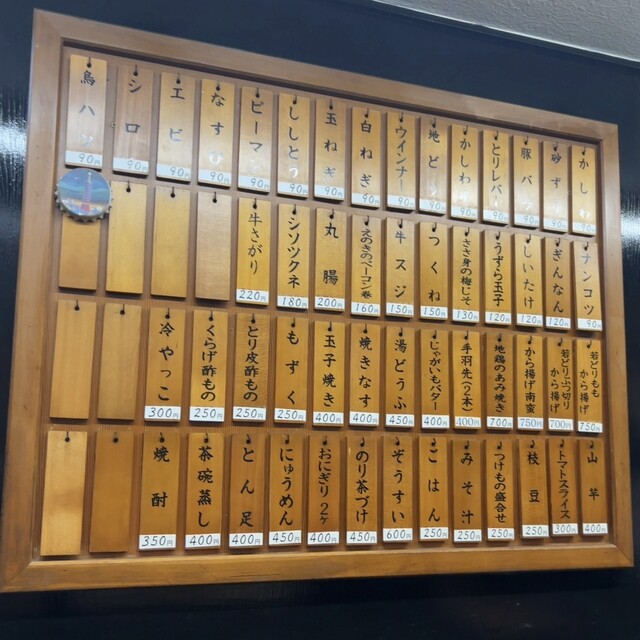 かしわ
90円
砂ず
90円
豚バラ
90円
とりレバー
90円
かしわ
90円
地どり
90円
ウインナー
90円
白ねぎ
90円
玉ねぎ
90円
ししとう
90円
ピーマン
90円
なすび
90円
エビ
90円
シロ
90円
90円
ナンコツ
90円
ぎんなん
120円
しいたけ
120円
うずら玉子
120円
ささ身の梅じそ
130円
つくね
150円
牛スジ
150円
えのきのベーコン巻
160円
丸腸
200円
シソツクネ
180円
牛さがり
220円
若どりもも
から揚げ
750円
若どりぶつ切り
から揚げ
700円
から揚げ南蛮
750円
地鶏のあみ焼き
700円
手羽先(2本)
400円
じゃがいもバター
400円
湯どうふ
450円
焼きなす
400円
玉子焼き
400円
もずく
250円
とり皮酢もの
250円
くらげ酢もの
250円
冷やっこ
300円
山芋
400円
トマトスライス
300円
枝豆
250円
つけもの盛合せ
250円
みそ汁
250円
ごはん
250円
ぞうすい
600円
のり茶づけ
450円
おにぎり2ヶ
400円
にゅうめん
450円
とん足
400円
茶碗蒸し
400円
焼酎
350円